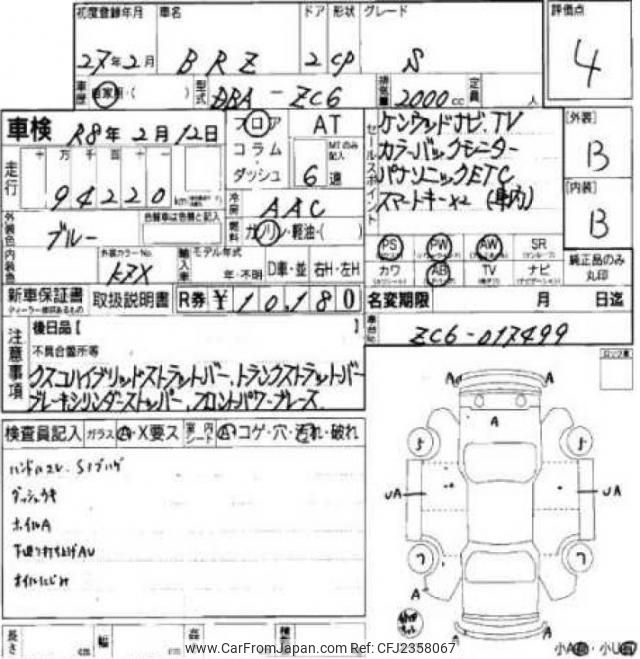 初度登録年月 車名 ドア 形状 グレード 評価点
27年2月 BRZ 2 CP S 4
車歴 自家用・( ) 型式 DBA-ZC6 排気量 2000cc 定員 人
車検 R8年2月12日 フロア AT
コラム
ダッシュ MTのみ記入 6速
走行 十万千百十一
94220km
セールスポイント
ケンウッドナビ、TV
カラーバックモニター
パナソニックETC
スマートキー×2 (車内)
[外装]
B
[内装]
B
外装色 ブルー 色替車は色替と記入
冷房 AAC
燃料 ガソリン・軽油・( )
内装色 外装カラーNo. K7X
輸入車 モデル年式 年・不明 D車・並 右H・左H
PS PW AW SR
カワ AB TV ナビ
純正品のみ丸印
新車保証書 取扱説明書 R券 ¥10,180
名変期限 月 日迄
車台No. ZC6-017499
注意事項
後日品【 】
不具合箇所等
クスコハイブリッドストラットバー、トランクストラットバー
ブレーキシリンダーストッパー、フロントパワーブレース
検査員記入 ガラス A・X要ス 室内 シート A コゲ・穴・汚れ・破れ
ハンドルスレ、S1ブハゲ
ダッシュウキ
ホイルA
下廻り打ち上げAU
オイルにじみ
A A
A
5 5
UA UA
7 7
A
A A
長さ cm 幅 cm 高 cm
小A 小U
www.CarFromJapan.com Ref: CFJ2358067